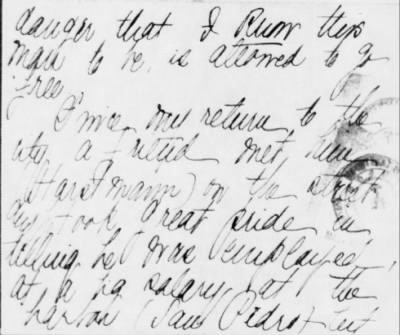 danger that I know this
man to be, is allowed to go
free.
Since my return to the
city a friend met him
(Harstmann) on the street
and took great pride in
telling he was employed,
at a big salary, at the
harbor (San Pedro) but